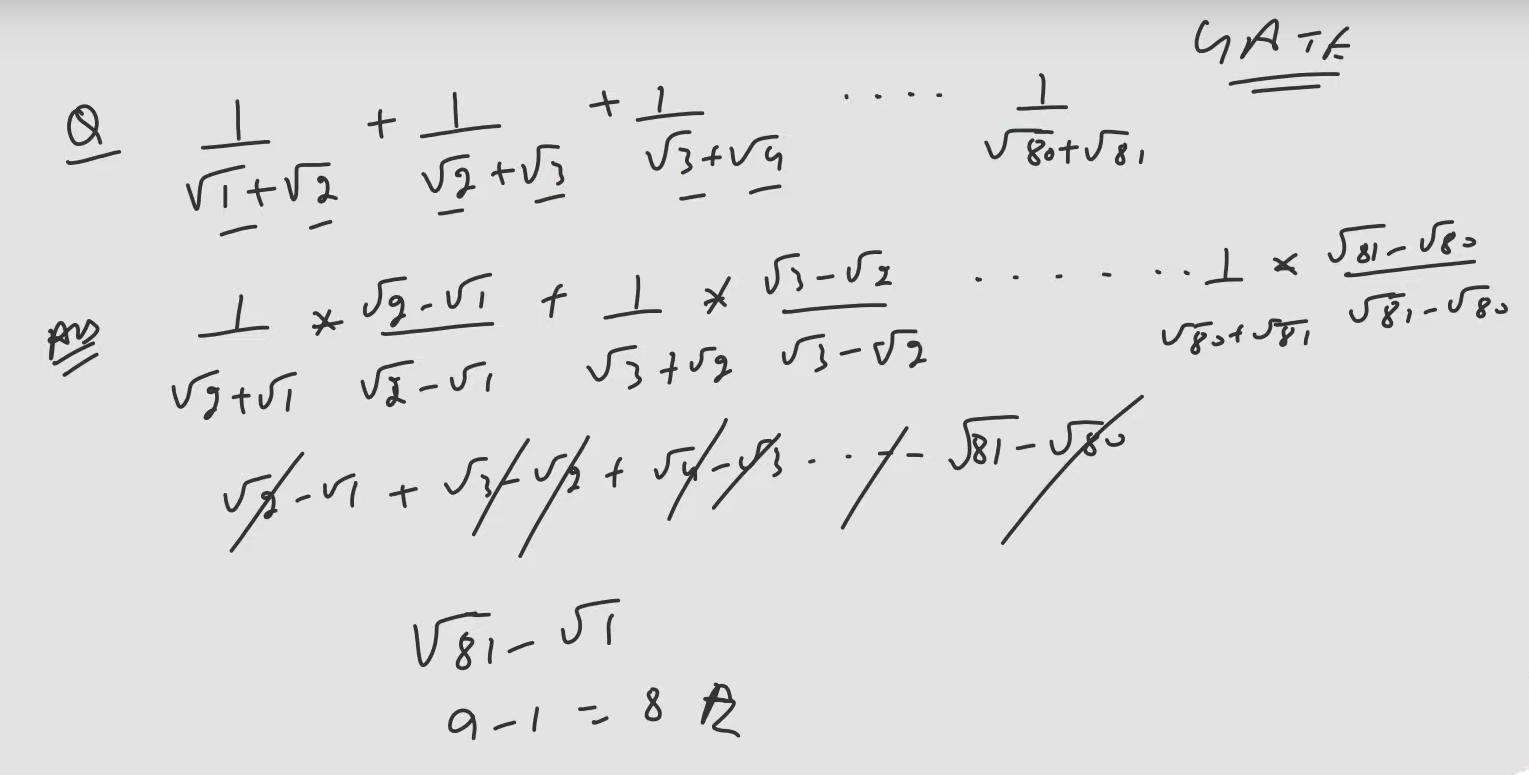 GATE
Q 1/(√1+√2) + 1/(√2+√3) + 1/(√3+√4) .... 1/(√80+√81)
Ans 1/(√2+√1) × (√2-√1)/(√2-√1) + 1/(√3+√2) × (√3-√2)/(√3-√2) ....... 1/(√80+√81) × (√81-√80)/(√81-√80)
√2-√1 + √3-√2 + √4-√3 ... - - √81-√80
√81-√1
9-1 = 8